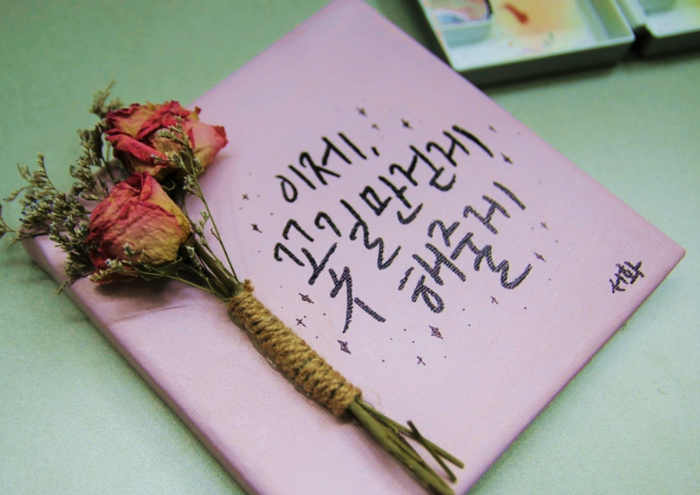 이제,
꽃길만 걷게
해줄게
서화